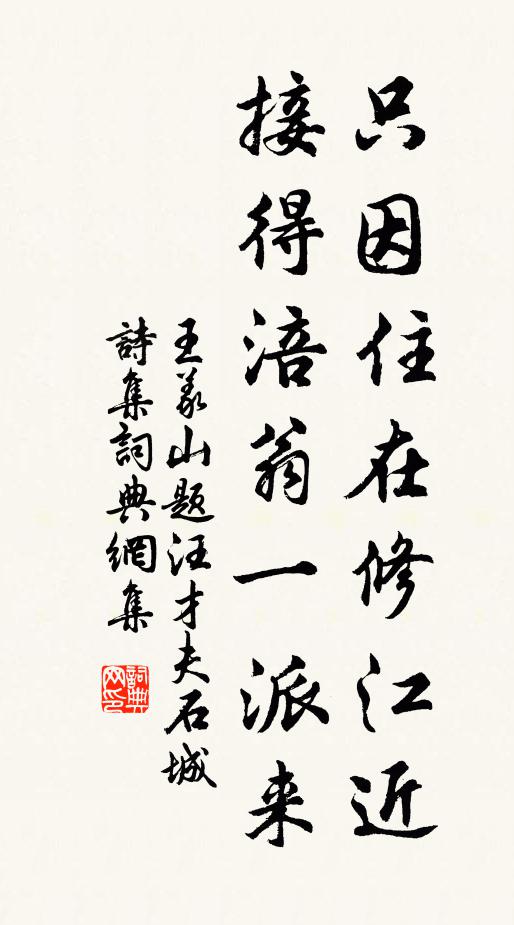 只因住在修江近
接得涪翁一派来
王義山题汪才夫石城
詩集詞典網集
詞典
网印